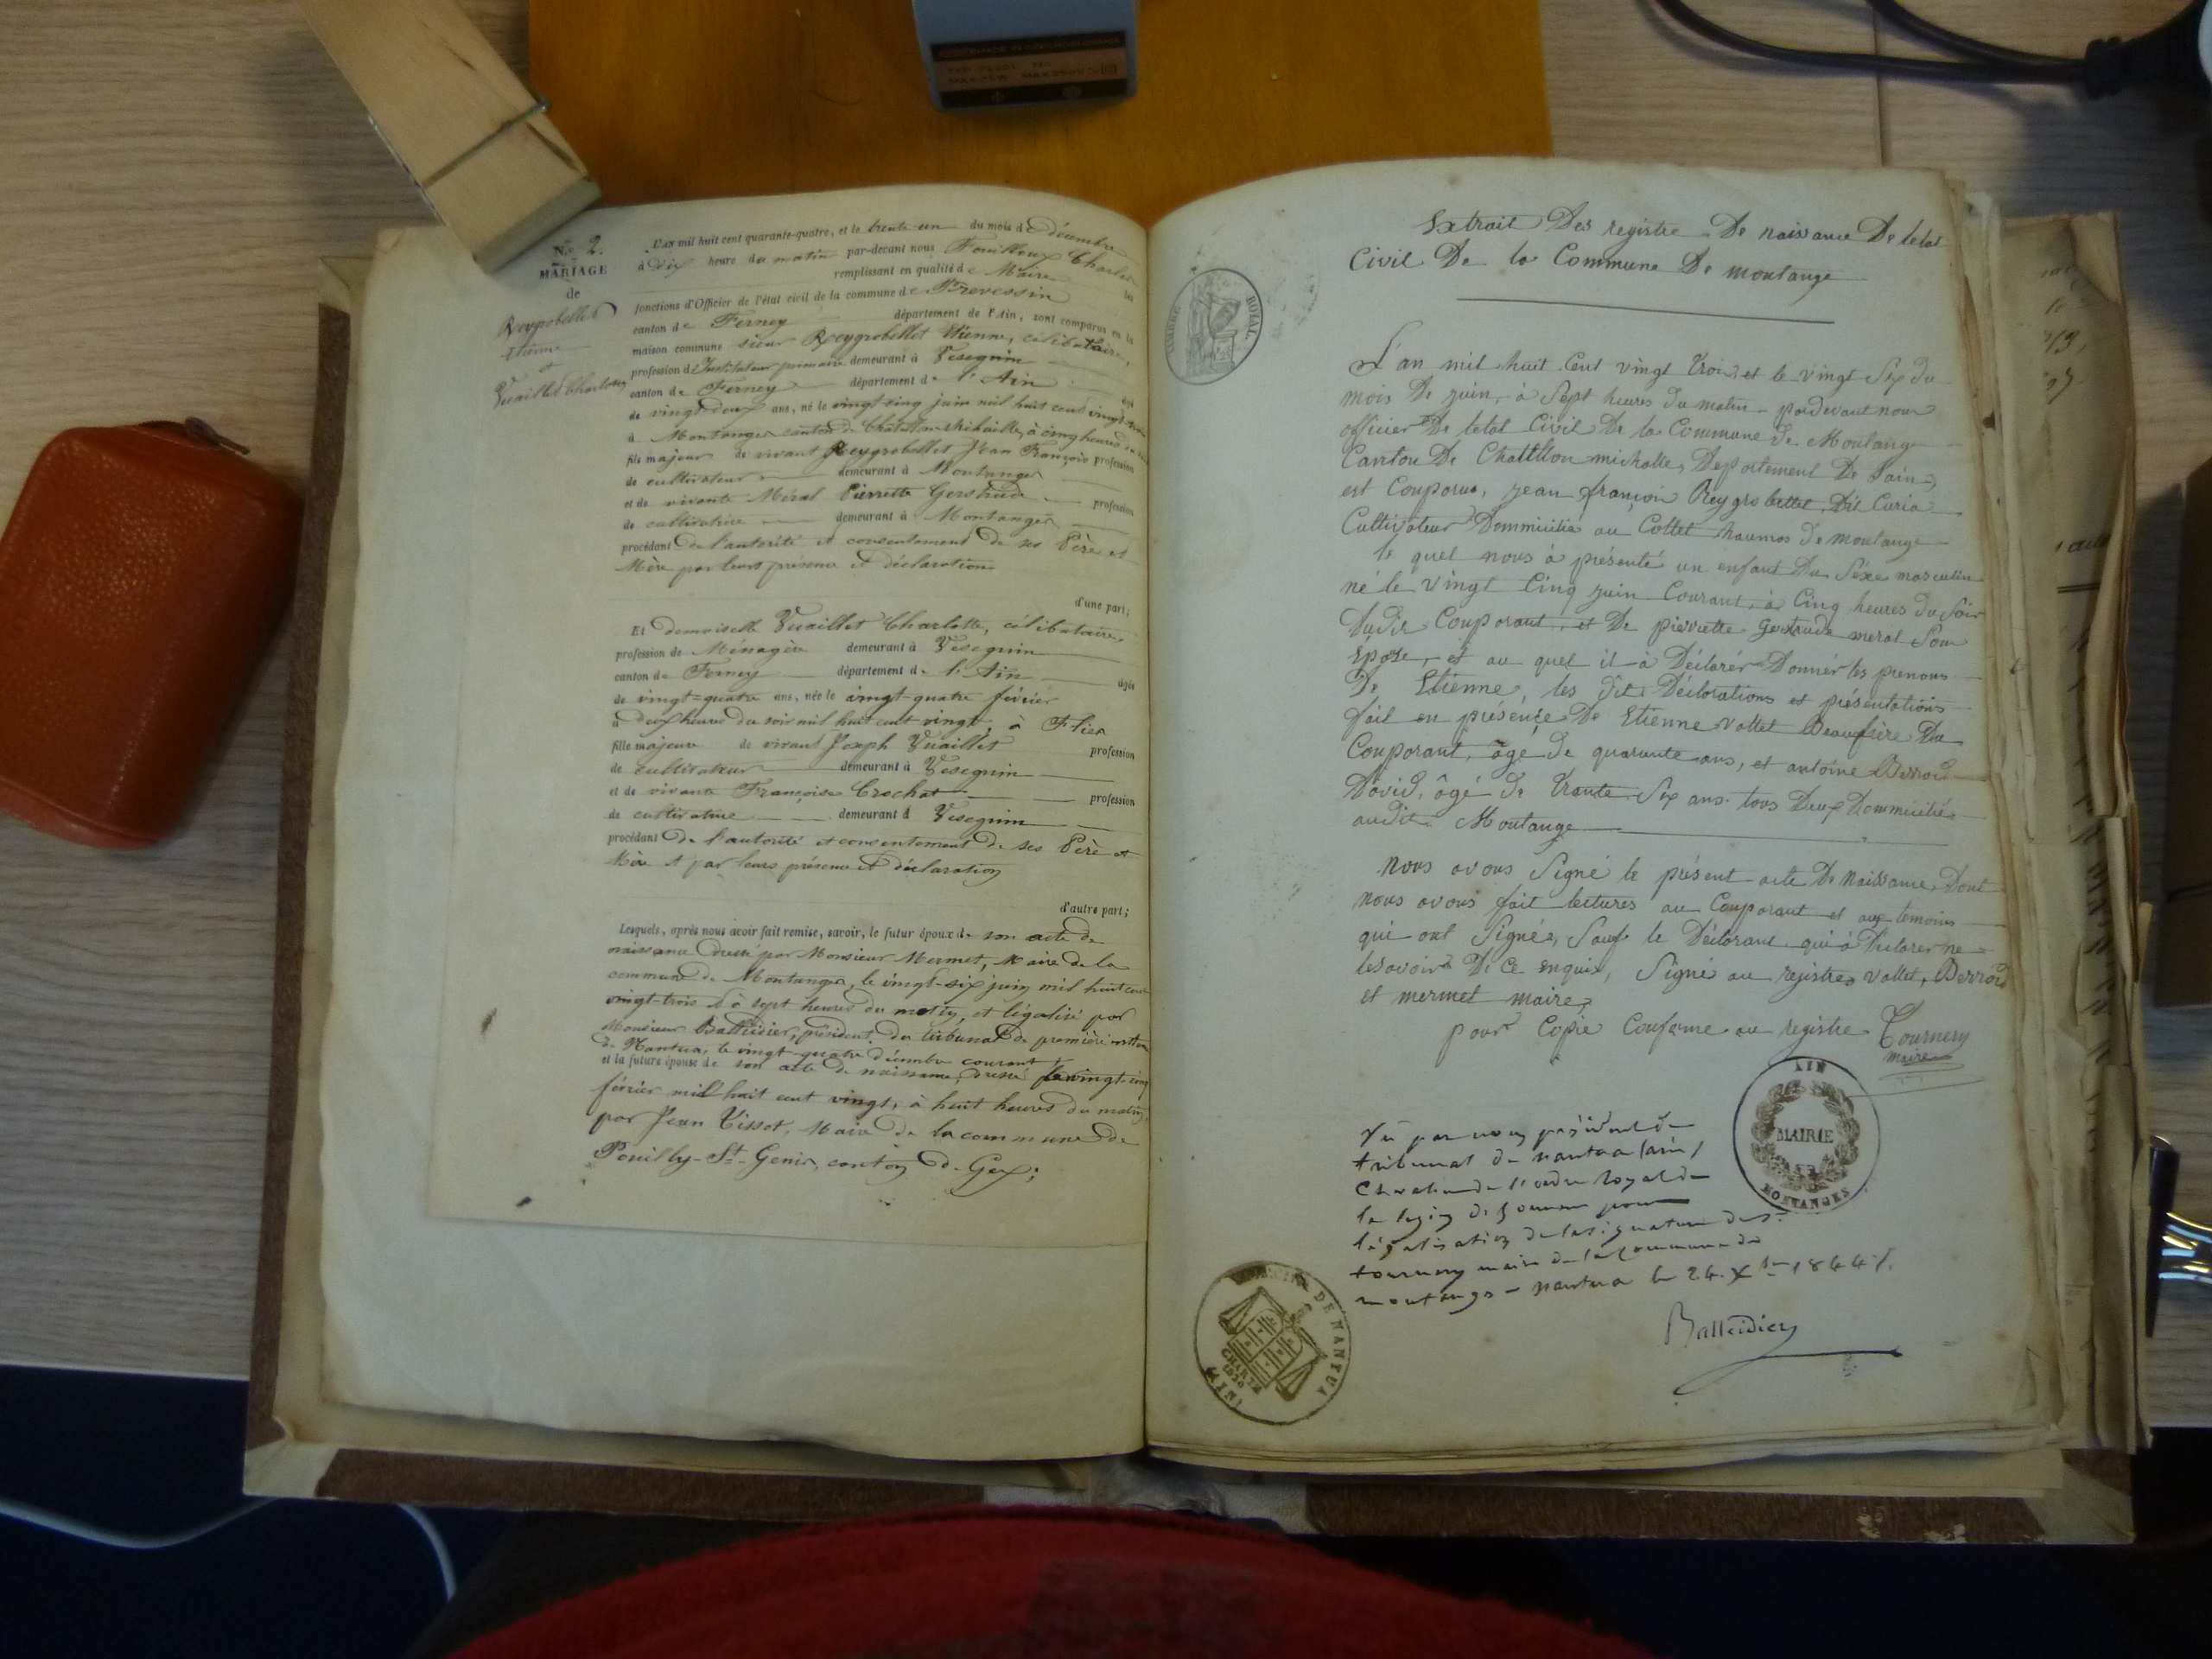 N.º 2.
MARIAGE
de
Reygrobellet
Etienne
et
Vuaillet Charlotte
L'an mil huit cent quarante-quatre, et le trente un du mois de décembre
à dix heure du matin par-devant nous Fouilloux Charles
remplissant en qualité de Maire les
fonctions d'Officier de l'état civil de la commune de Prevessin
canton de Ferney département de l'Ain, sont comparus en la
maison commune sieur Reygrobellet Etienne, célibataire,
profession d'Instituteur primaire demeurant à Vesegnin
canton de Ferney département de l'Ain âgé
de vingt-deux ans, né le vingt-cinq juin mil huit cent vingt-trois
à Montanges canton de Châtillon-Michaille, à cinq heures du soir
fils majeur de vivant Reygrobellet Jean François profession
de cultivateur demeurant à Montanges
et de vivante Méral Pierrette Gertrude profession
de cultivatrice demeurant à Montanges
procédant de l'autorité et consentement de ses Père et
Mère par leurs présence et déclaration
d'une part;
Et demoiselle Vuaillet Charlotte, célibataire,
profession de Ménagère demeurant à Vesegnin
canton de Ferney département de l'Ain âgée
de vingt-quatre ans, née le vingt-quatre février
à deux heures du soir mil huit cent vingt, à Flies
fille majeure de vivant Joseph Vuaillet profession
de cultivateur demeurant à Vesegnin
et de vivante Françoise Crochat profession
de cultivatrice demeurant à Vesegnin
procédant de l'autorité et consentement de ses Père et
Mère et par leurs présence et déclaration
d'autre part;
Lesquels, après nous avoir fait remise, savoir, le futur époux de son acte de
naissance dressé par Monsieur Mermet, Maire de la
commune de Montanges, le vingt-six juin mil huit cent
vingt-trois et à sept heures du matin, et légalisé par
Monsieur Balleidier, président du tribunal de première instance
de Nantua, le vingt-quatre décembre courant
et la future épouse de son acte de naissance, dressé le vingt-cinq
février mil huit cent vingt, à huit heures du matin,
par Jean Tissot, Maire de la commune de
Pouilly-St-Genis, canton de Gex;
Extrait Des registre De naissance De letat
Civil De la Commune De montange
TIMBRE ROYAL
L'an mil huit Cent vingt trois et le vingt Six du
mois De juin, à Sept heures du matin pardevant nous
officier De letat Civil De la Commune De Montange
Canton De Chattillon michaille, Departement De Lain,
est Couparus, jean françois Reygrobellet Dit Curia
Cultivateur Dommicilié au Collet haumos De montange
le quel nous à présenté un enfant Du Séxe masculin
né le vingt Cinq juin Courant, à Cinq heures du Soir
dudit Couparant, et De pierrette Gertrude meral Son
épose, et au quel il à Déclarér Donnér les prenoms
De Etienne, les dite Déclarations et présentations
fait en présénce De Etienne vallet Beaufrère Du
Couparant, âgé de quarante ans, et antoine Berrod
David, âgé de trante Six ans tous Deux Dommiciliés
audit Montange
nous avons Signé le présent acte De Naissance, Dont
nous avons fait lectures au Couparant et aux temoins
qui ont Signés, Sauf le Déclarant qui à Déclarer ne
lesavoir De ce enquis, Signé au registres vallet, Berrod
et mermet maire,
pour Copie Conforme au registre Tournery
maire
AIN
MAIRIE
DE
MONTANGES
Vu par nous président du
tribunal de nantua (ain)
Chevalier de l'ordre Royal de
la legion d'honneur pour
légalisation de la signature du Sr
tournery maire de la commune de
montanges - nantua le 24 Xbre 1844
Balleidier
DE NANTUA
CHARTE
1830
(AIN)